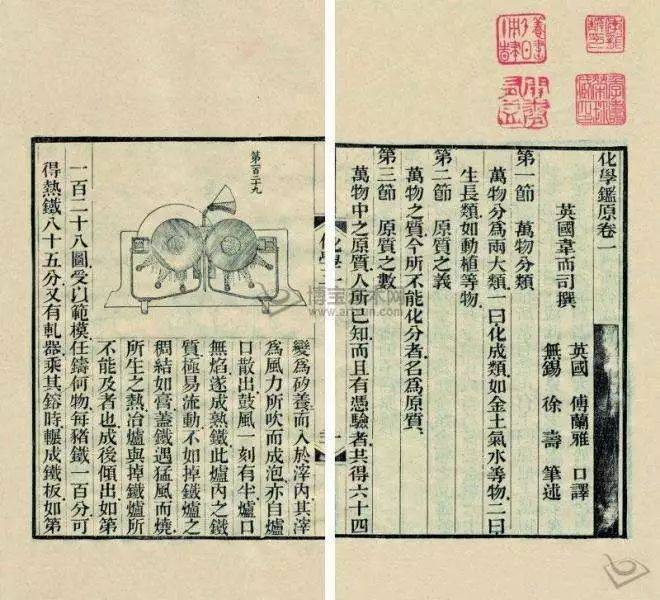 化學鑑原卷一
英國韋而司撰
英國 傅蘭雅 口譯
無錫 徐壽 筆述
第一節 萬物分類
萬物分爲兩大類一曰化成類如金土氣水等物二曰
生長類如動植等物
第二節 原質之義
萬物之質今所不能化分者名爲原質
第三節 原質之數
萬物中之原質人所已知而且有憑驗者共得六十四
第一百二十九
變爲矽養而入於滓內其滓
爲風力所吹而成泡亦自爐
口散出鼓風一刻有半爐口
無焰遂成熟鐵此爐內之鐵
質極易流動不如掉鐵爐之
稠結如膏蓋鐵遇猛風而燒
所生之熱冶爐與掉鐵爐所
不能及者也成後傾出如第
一百二十八圖受以範模任鑄何物每豬鐵一百分可
得熱鐵八十五分又有軋器乘其鎔時輾成鐵板如第
博宝艺术网